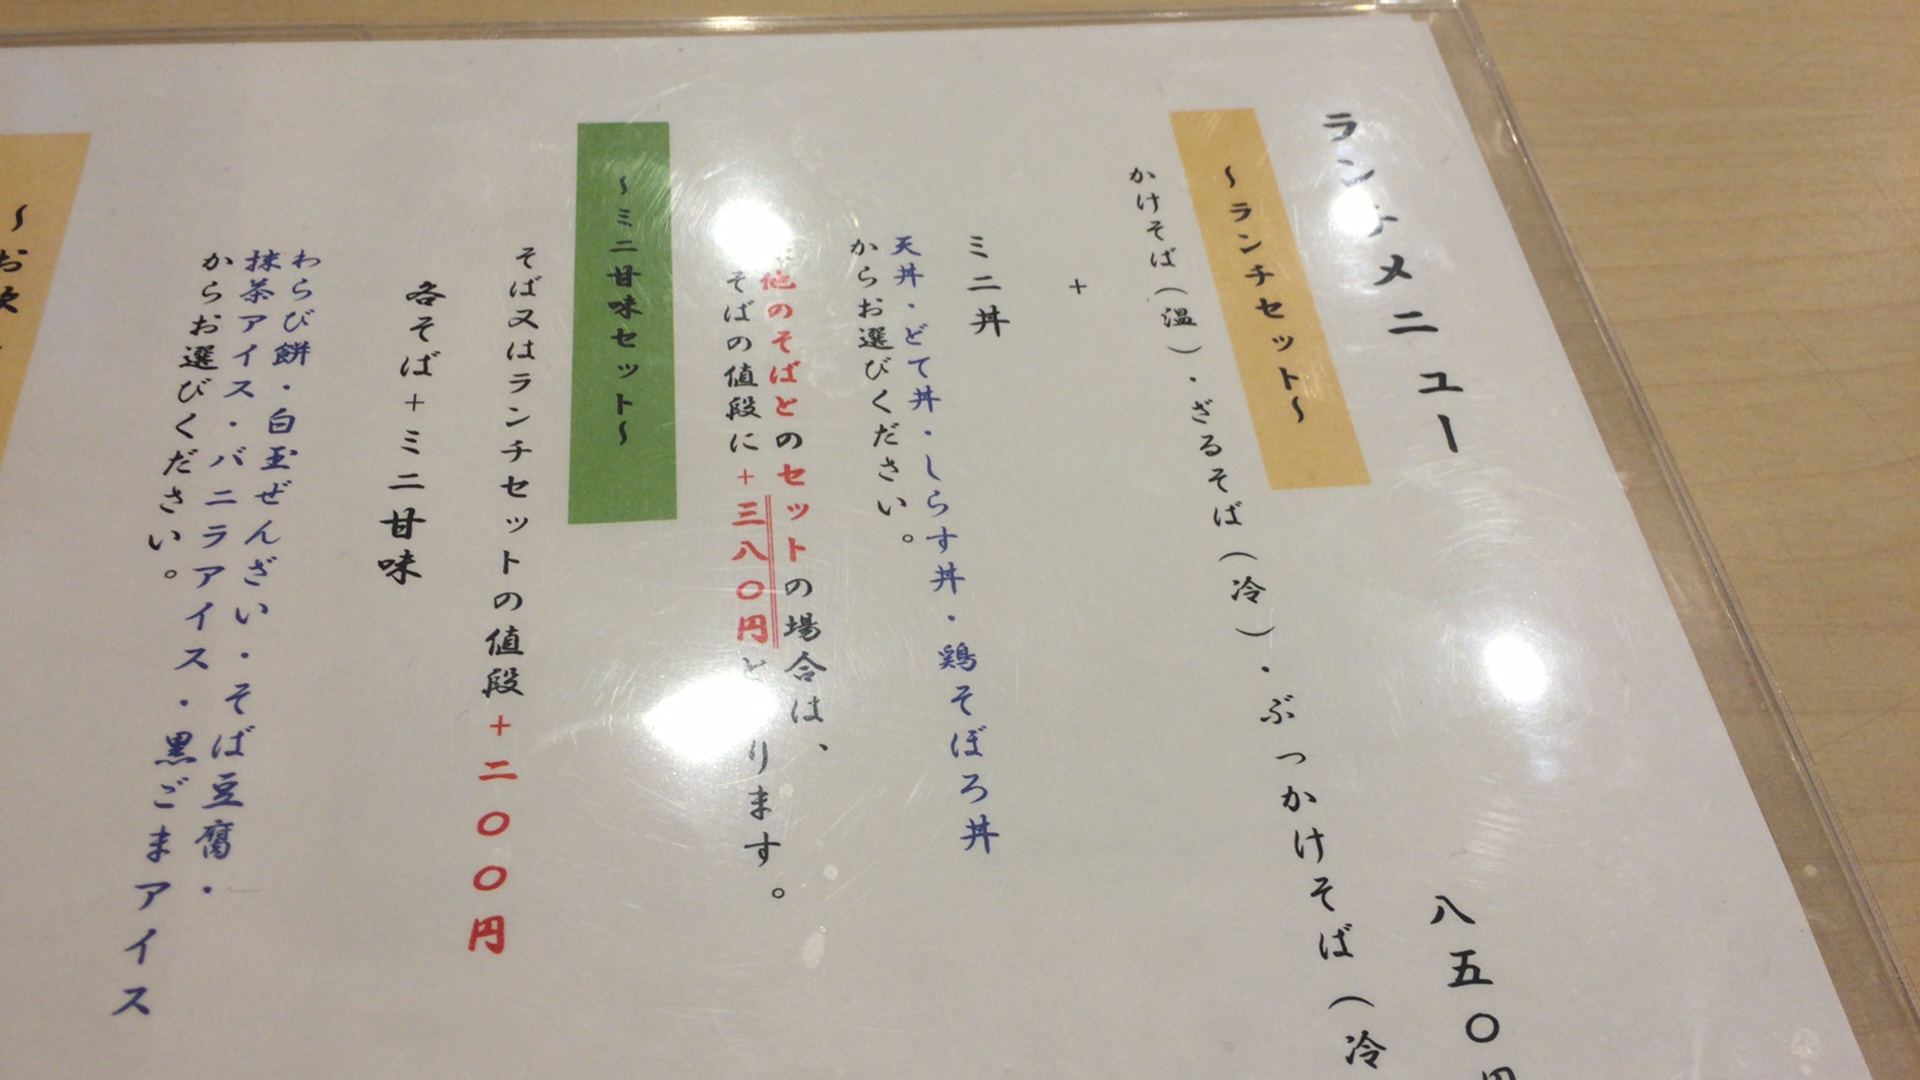 ランチメニュー
～ランチセット～
八五〇円
かけそば（温）・ざるそば（冷）・ぶっかけそば（冷
＋
ミニ丼
天丼・どて丼・しらす丼・鶏そぼろ丼
からお選びください。
他のそばとのセットの場合は、
そばの値段に＋三八〇円となります。
～ミニ甘味セット～
そば又はランチセットの値段＋二〇〇円
各そば＋ミニ甘味
わらび餅・白玉ぜんざい・そば豆腐・
抹茶アイス・バニラアイス・黒ごまアイス
からお選びください。
～お